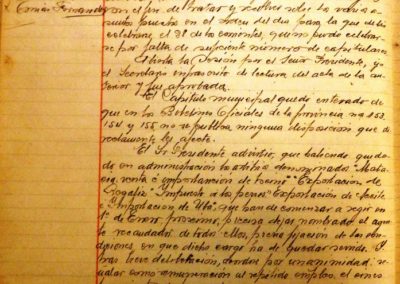 Tomás Fernandez con el fin de tratar y resolver sobre los varios a-
suntos puestos en el orden del dia para la que debió
celebrarse, el 28 de los corrientes, que no pudo celebrar-
se por falta de suficiente número de capitulares.
Abierta la sesión por el Señor Presidente, yo
el Secretario infrascrito dí lectura del acta de la an-
terior y fué aprobada.
El Capítulo municipal quedó enterado de
que en los Boletines Oficiales de la provincia nos 153,
154 y 155, no se publica ninguna disposición que di-
rectamente le afecte.
El Sr. Presidente advirtió, que habiendo queda-
do en administración los arbitrios denominados
venta é importación de carne "Exportación de
" "Impuesto a los perros" "Exportación de Aceite"
é "Importación de Uba", que han de comenzar á regir en
1º de Enero próximo, precisa dejar nombrado el agen-
te recaudador de todos ellos, previa fijación de las con-
diciones, en que dicho cargo ha de quedar servido. Y
tras breve deliberación, acordó por unanimidad,
señalar como remuneración al repetido empleo, el cinco